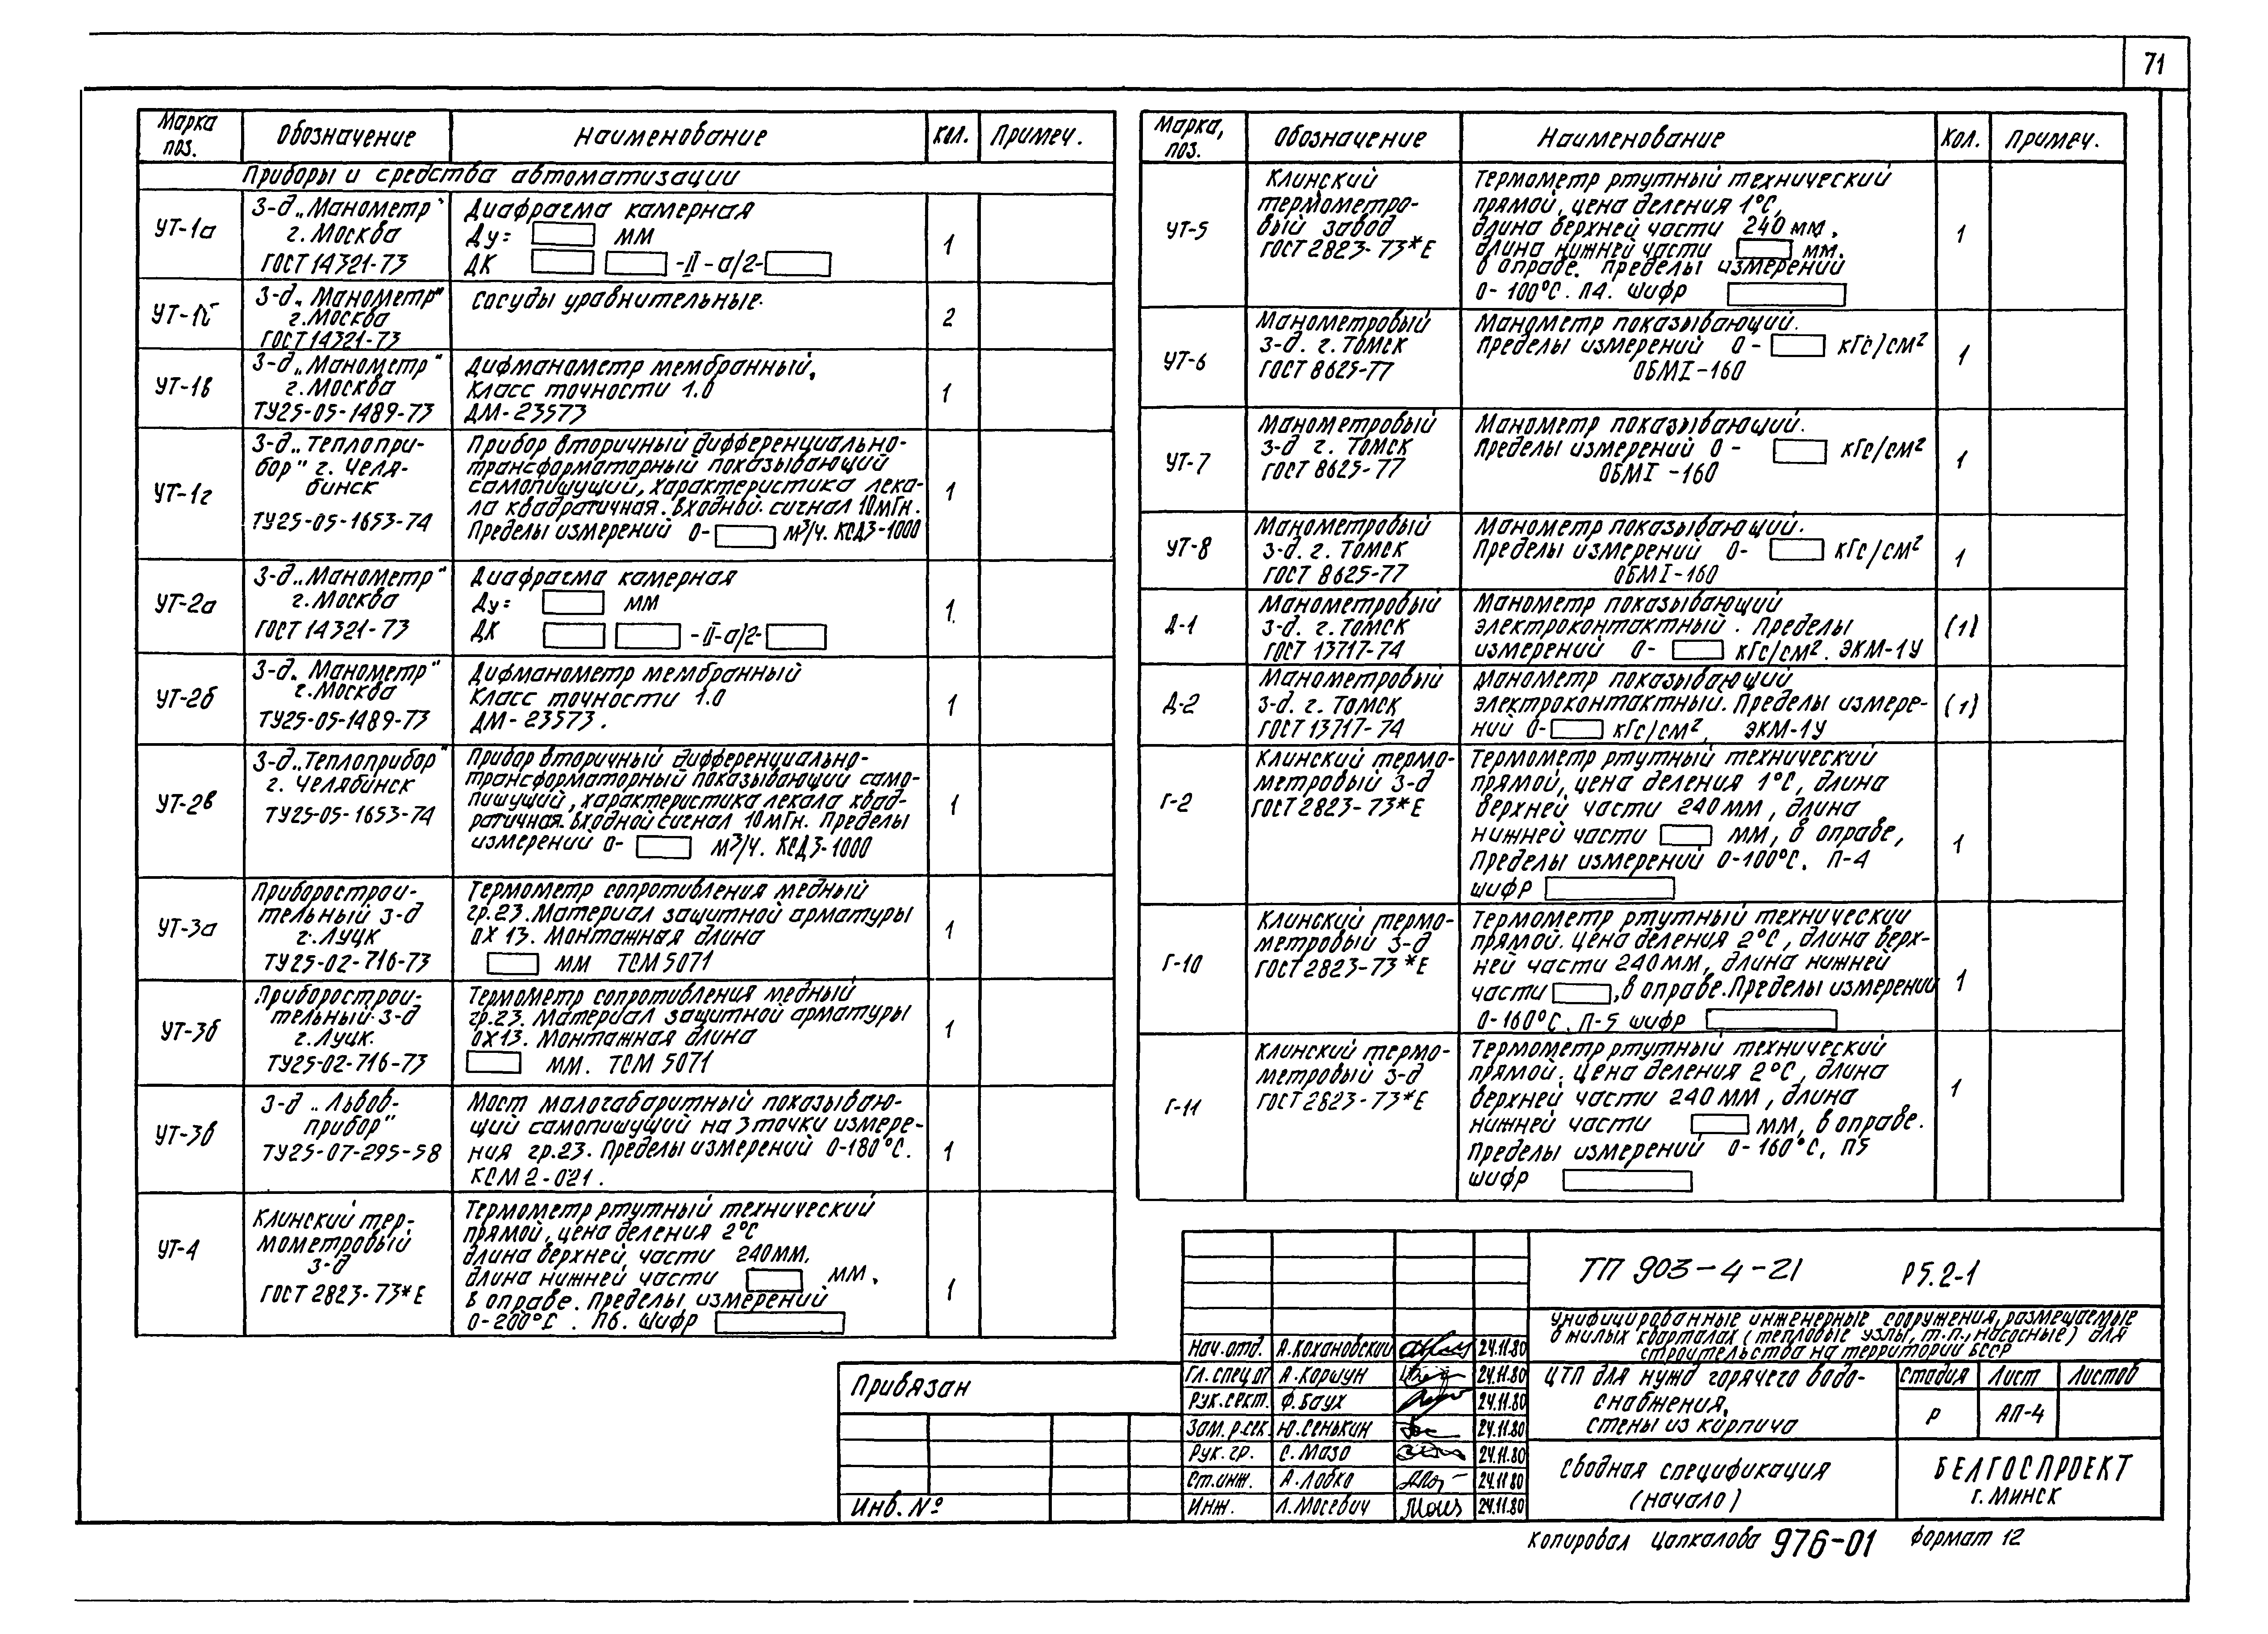 71
Марка
поз.
Обозначение
Наименование
Кол.
Примеч.
Приборы и средства автоматизации
УТ-1а
З-д „Манометр"
г. Москва
ГОСТ 14321-73
Диафрагма камерная
Ду= мм
ДК -II-а/2-
1
УТ-1б
З-д „Манометр"
г. Москва
ГОСТ 14321-73
Сосуды уравнительные.
2
УТ-1в
З-д „Манометр"
г. Москва
ТУ25-05-1489-73
Дифманометр мембранный,
Класс точности 1.0
ДМ-23573
1
УТ-1г
З-д „Теплопри-
бор" г. Челя-
бинск
ТУ25-05-1653-74
Прибор вторичный дифференциально-
трансформаторный показывающий
самопишущий, характеристика лека-
ла квадратичная. Входной сигнал 10мГн.
Пределы измерений 0- м³/ч. КСД3-1000
1
УТ-2а
З-д „Манометр"
г. Москва
ГОСТ 14321-73
Диафрагма камерная
Ду= мм
ДК -II-а/2-
1
УТ-2б
З-д „Манометр"
г. Москва
ТУ25-05-1489-73
Дифманометр мембранный
Класс точности 1.0
ДМ-23573.
1
УТ-2в
З-д „Теплоприбор"
г. Челябинск
ТУ25-05-1653-74
Прибор вторичный дифференциально-
трансформаторный показывающий само-
пишущий, характеристика лекала квад-
ратичная. Входной сигнал 10мГн. Пределы
измерений 0- м³/ч. КСД3-1000
1
УТ-3а
Приборострои-
тельный з-д
г. Луцк
ТУ25-02-716-73
Термометр сопротивления медный
гр.23. Материал защитной арматуры
0Х13. Монтажная длина
мм ТСМ 5071
1
УТ-3б
Приборострои-
тельный з-д
г. Луцк.
ТУ25-02-716-73
Термометр сопротивления медный
гр.23. Материал защитной арматуры
0Х13. Монтажная длина
мм. ТСМ 5071
1
УТ-3в
З-д „Львов-
прибор"
ТУ25-07-295-58
Мост малогабаритный показываю-
щий самопишущий на 3 точки измере-
ния гр.23. Пределы измерений 0-180°С.
КСМ2-021.
1
УТ-4
Клинский тер-
мометровый
з-д
ГОСТ 2823-73*Е
Термометр ртутный технический
прямой, цена деления 2°С
длина верхней части 240мм,
длина нижней части мм,
в оправе. Пределы измерений
0-200°С. П6. Шифр
1
Марка,
поз.
Обозначение
Наименование
Кол.
Примеч.
УТ-5
Клинский
термометро-
вый завод
ГОСТ 2823-73*Е
Термометр ртутный технический
прямой, цена деления 1°С,
длина верхней части 240 мм,
длина нижней части мм.
в оправе. Пределы измерений
0-100°С. П4. Шифр
1
УТ-6
Манометровый
з-д. г. Томск
ГОСТ 8625-77
Манометр показывающий.
Пределы измерений 0- кГс/см²
ОБМI-160
1
УТ-7
Манометровый
з-д г. Томск
ГОСТ 8625-77
Манометр показывающий.
Пределы измерений 0- кГс/см²
ОБМI-160
1
УТ-8
Манометровый
з-д. г. Томск
ГОСТ 8625-77
Манометр показывающий.
Пределы измерений 0- кГс/см²
ОБМI-160
1
Д-1
Манометровый
з-д. г. Томск
ГОСТ 13717-74
Манометр показывающий
электроконтактный. Пределы
измерений 0- кГс/см². ЭКМ-1У
(1)
Д-2
Манометровый
з-д. г. Томск
ГОСТ 13717-74
Манометр показывающий
электроконтактный. Пределы измере-
ний 0- кГс/см², ЭКМ-1У
(1)
Г-2
Клинский термо-
метровый з-д
ГОСТ 2823-73*Е
Термометр ртутный технический
прямой, цена деления 1°С, длина
верхней части 240мм, длина
нижней части мм, в оправе,
Пределы измерений 0-100°С. П-4
шифр
1
Г-10
Клинский термо-
метровый з-д
ГОСТ 2823-73*Е
Термометр ртутный технический
прямой. Цена деления 2°С, длина верх-
ней части 240мм, длина нижней
части , в оправе. Пределы измерений
0-160°С. П-5 шифр
1
Г-11
Клинский термо-
метровый з-д
ГОСТ 2823-73*Е
Термометр ртутный технический
прямой. Цена деления 2°С, длина
верхней части 240 мм, длина
нижней части мм, в оправе.
Пределы измерений 0-160°С, П5
шифр
1
Привязан
Инв. №
Нач.отд. А.Кохановский 24.11.80
Гл.спец.от А.Коршун 24.11.80
Рук.сект. Ф.Баух 24.11.80
Зам.р.сек. Ю.Сенькин 24.11.80
Рук.гр. С.Мазо 24.11.80
Ст.инж. А.Лобко 24.11.80
Инж. Л.Мосевич 24.11.80
ТП 903-4-21 Р5.2-1
Унифицированные инженерные сооружения, размещаемые
в жилых кварталах (тепловые узлы, т.п., насосные) для
строительства на территории БССР
ЦТП для нужд горячего водо-
снабжения,
стены из кирпича
Стадия Лист Листов
Р АП-4
Сводная спецификация
(начало)
БЕЛГОСПРОЕКТ
г. Минск
Копировал Цапкалова 976-01 Формат 12